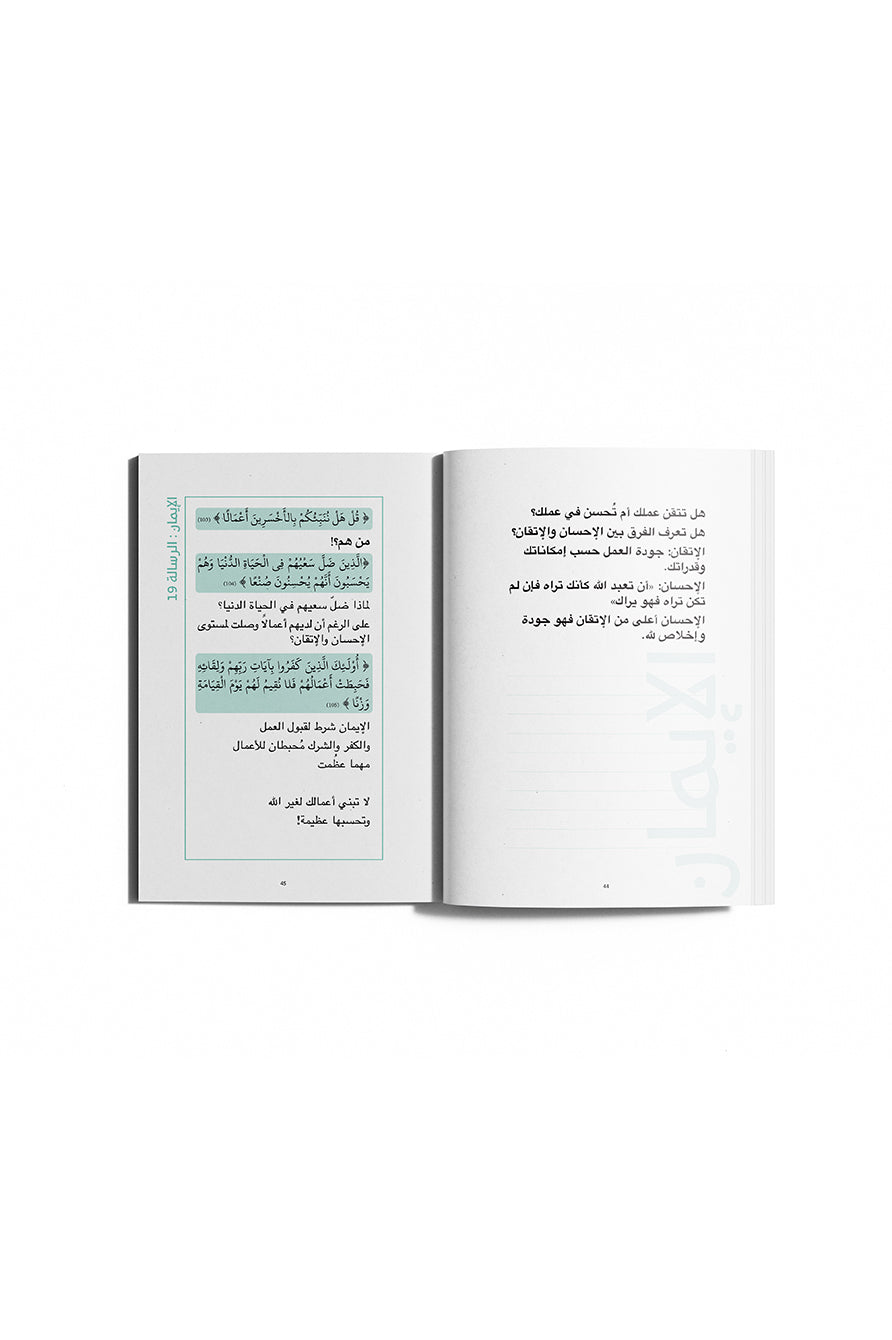 هل تتقن عملك أم تُحسن في عملك؟
هل تعرف الفرق بين الإحسان والإتقان؟
الإتقان: جودة العمل حسب إمكاناتك
وقدراتك.
الإحسان: «أن تعبد الله كأنك تراه فإن لم
تكن تراه فهو يراك»
الإحسان أعلى من الإتقان فهو جودة
وإخلاص لله.
الإيمان
44
الإيمان : الرسالة 19
﴿ قُلْ هَلْ نُنَبِّئُكُمْ بِالأَخْسَرِينَ أَعْمَالًا ﴾ (103)
من هم؟!
﴿الَّذِينَ ضَلَّ سَعْيُهُمْ فِى الْحَيَاةِ الدُّنْيَا وَهُمْ
يَحْسَبُونَ أَنَّهُمْ يُحْسِنُونَ صُنْعًا ﴾ (104)
لماذا ضلّ سعيهم في الحياة الدنيا؟
على الرغم أن لديهم أعمالًا وصلت لمستوى
الإحسان والإتقان؟
﴿ أُوْلَئِكَ الَّذِينَ كَفَرُوا بِآيَاتِ رَبِّهِمْ وَلِقَائِهِ
فَحَبِطَتْ أَعْمَالُهُمْ فَلَا نُقِيمُ لَهُمْ يَوْمَ الْقِيَامَةِ
وَزْنًا ﴾ (105)
الإيمان شرط لقبول العمل
والكفر والشرك مُحبطان للأعمال
مهما عظُمت
لا تبني أعمالك لغير الله
وتحسبها عظيمة!
45